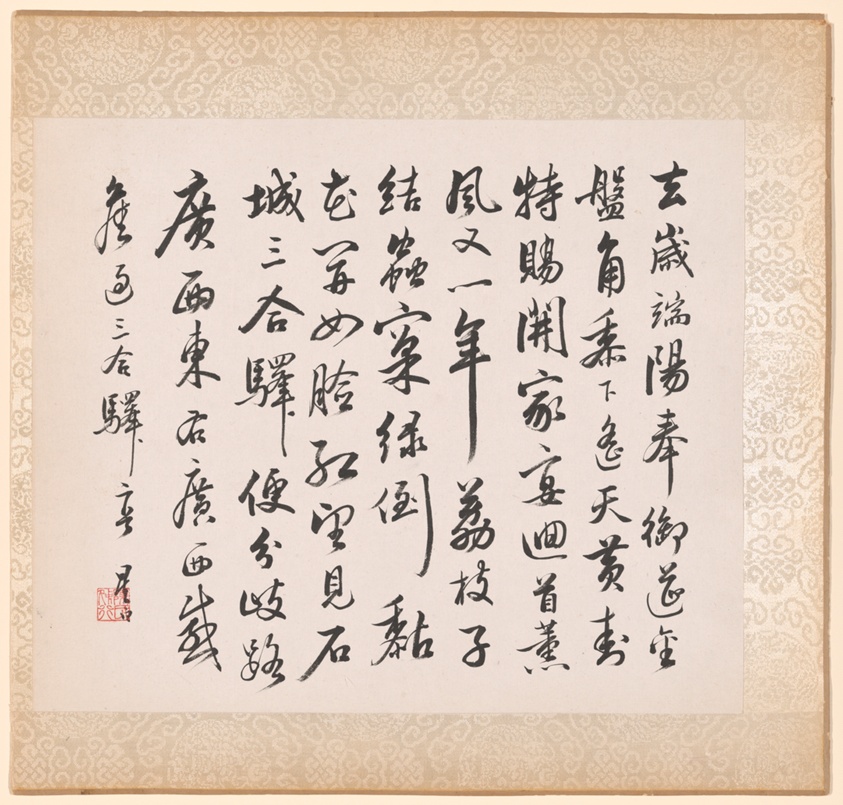 去歲端陽奉御筵金
盤角黍下遙天黃封
特賜開家宴迴首薰
風又一年荔枝子
結蟲窠綠倒黏
花開女臉紅望見石
城三合驛便分歧路
廣西東右廣西
過三合驛